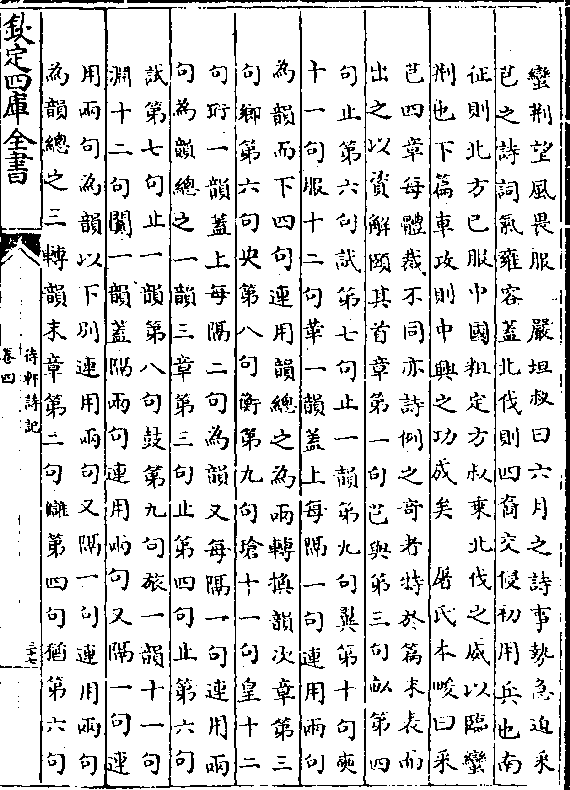 蠻荆望風畏服　嚴坦叔曰六月之詩事勢急迫采
芑之詩詞氣雍容蓋北伐則四裔交侵初用兵也南
征則北方已服中國粗定方叔乗北伐之威以臨蠻
荆也下篇車攻則中興之功成矣　屠氏本畯曰采
芑四章每體裁不同亦詩例之竒者特於篇末表而
出之以資解頤其首章第一句芑與第三句畝第四
句止第六句試第七句止一韻第九句翼第十句奭
十一句服十二句革一韻蓋上每隔一句連用兩句
為韻而下四句連用韻總之為兩轉換韻次章第三
句鄉第六句央第八句衡第九句瑲十一句皇十二
句珩一韻蓋上每隔二句為韻又每隔一句連用兩
句為韻總之一韻三章第三句止第四句止第六句
試第七句止一韻第八句鼓第九句旅一韻十一句
淵十二句闐一韻蓋隔兩句連用兩句又隔一句連
用兩句為韻以下别連用兩句又隔一句連用兩句
為韻總之三轉韻末章第二句讎第四句猶第六句
欽定四庫全書
待軒詩記
卷四
三十七